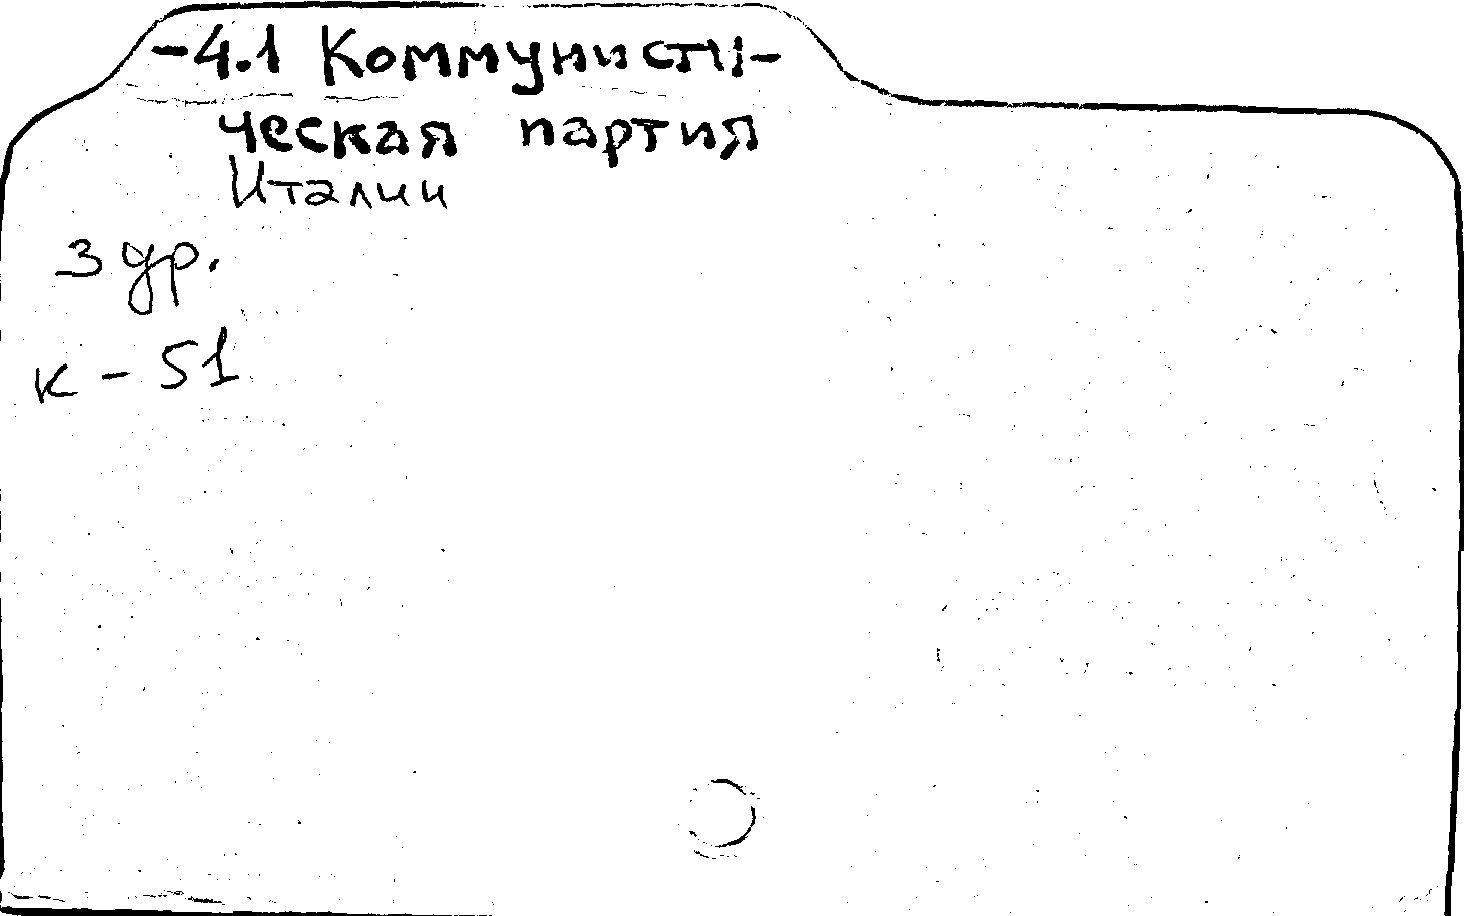 -4.1 Коммунисти-
ческая партия
Италии
3 ур.
к - 51